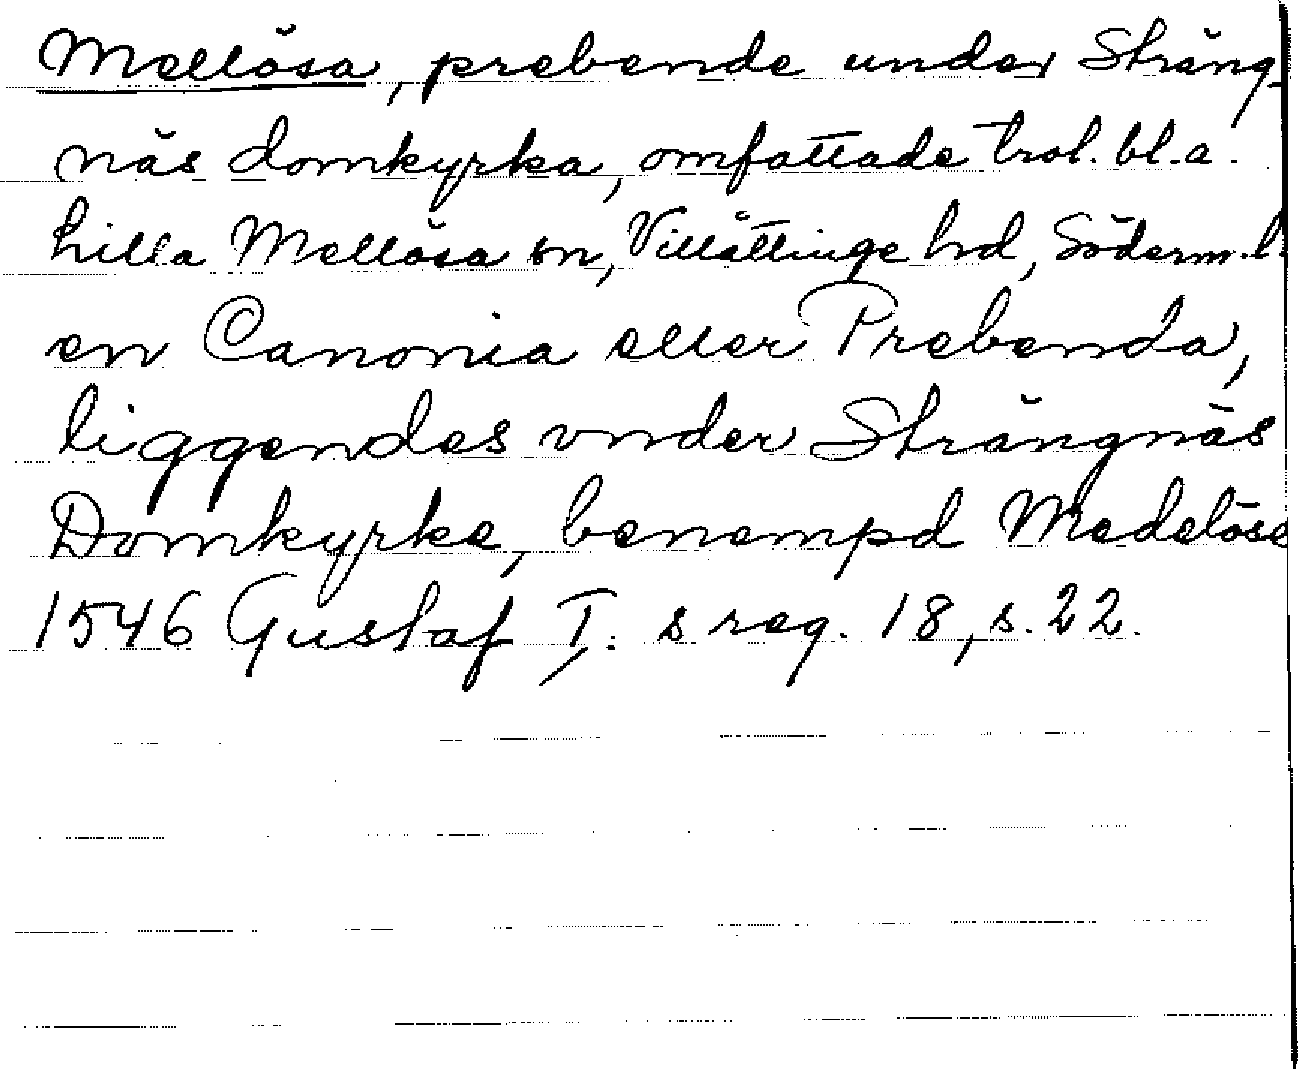 Mellösa, prebende under Sträng-
näs domkyrka, omfattade trol. bl.a.
lilla Mellösa sn, Villåttinge hd, Söderm.l.
en Canonia eller Prebenda,
liggendes vnder Strängnäs
Domkyrke, benempd Medelöse
1546 Gustaf I: s reg. 18, s. 22.